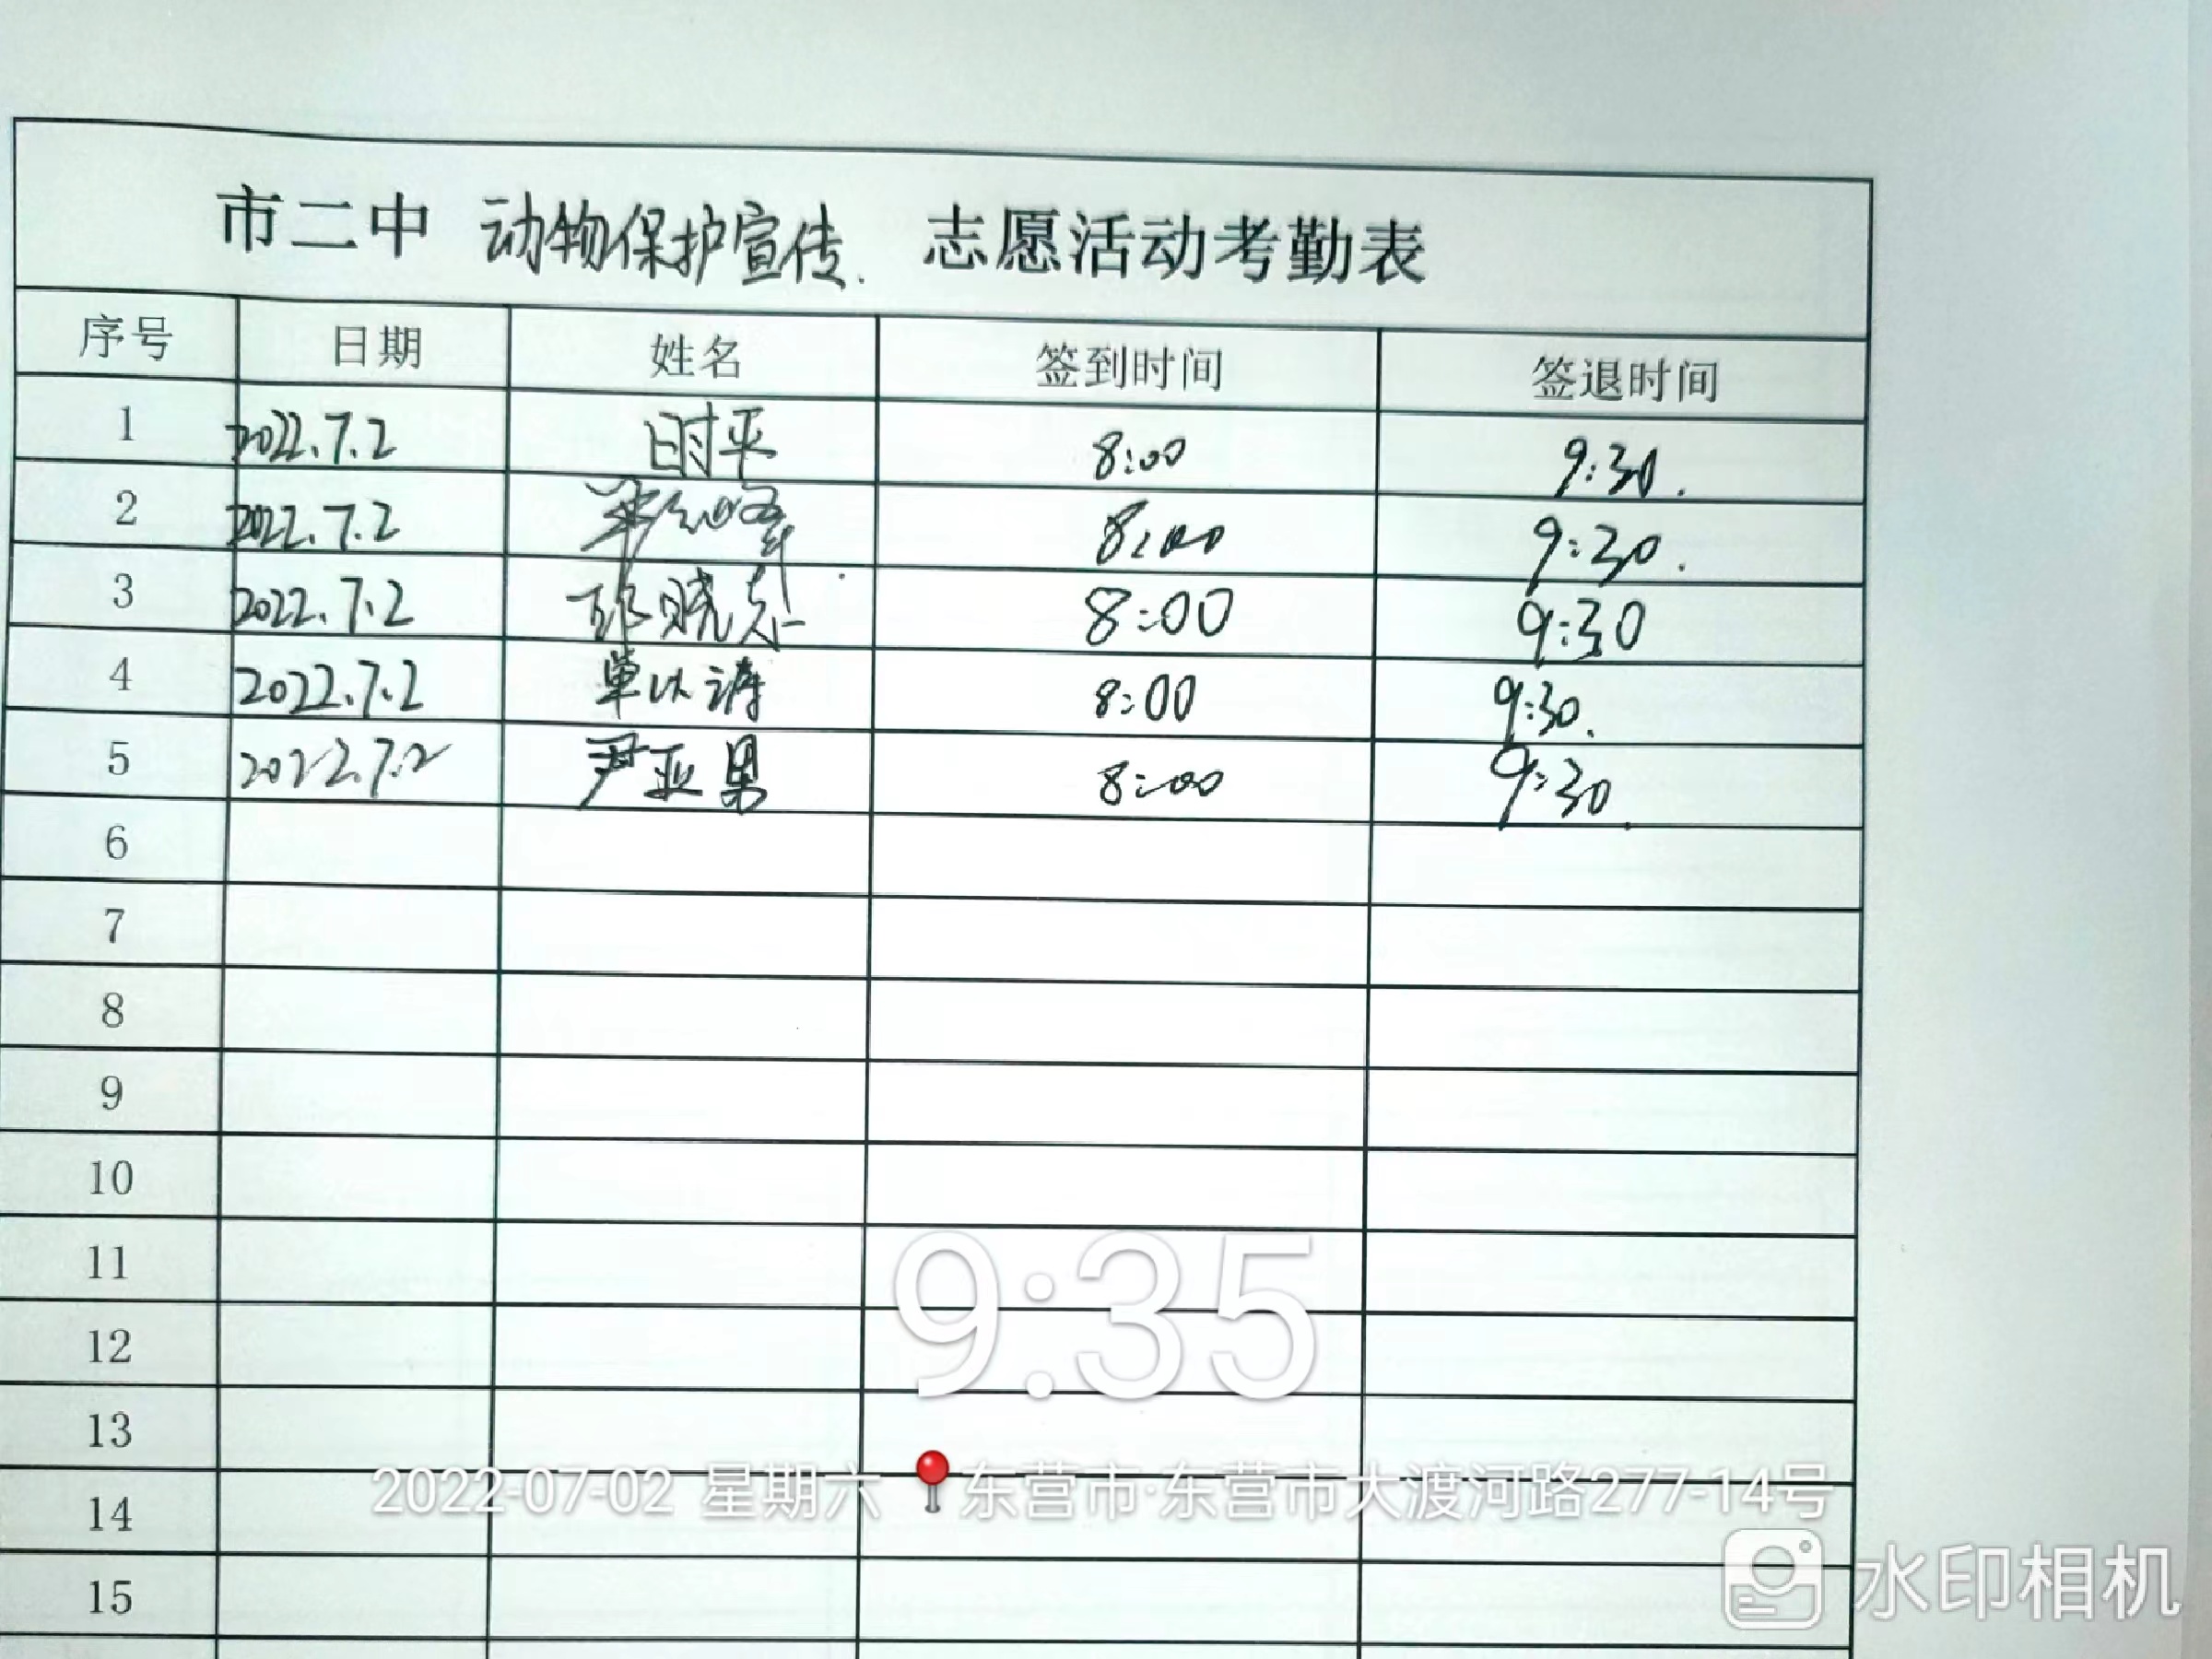 市二中 动物保护宣传. 志愿活动考勤表
序号 日期 姓名 签到时间 签退时间
1 2022.7.2 时平 8:00 9:30.
2 2022.7.2 8:00 9:30.
3 2022.7.2 晓东 8:00 9:30
4 2022.7.2 单以涛 8:00 9:30.
5 2022.7.2 尹亚男 8:00 9:30.
6
7
8
9
10
11
12
13
14
15
9:35
2022-07-02 星期六 东营市·东营市大渡河路277-14号
水印相机